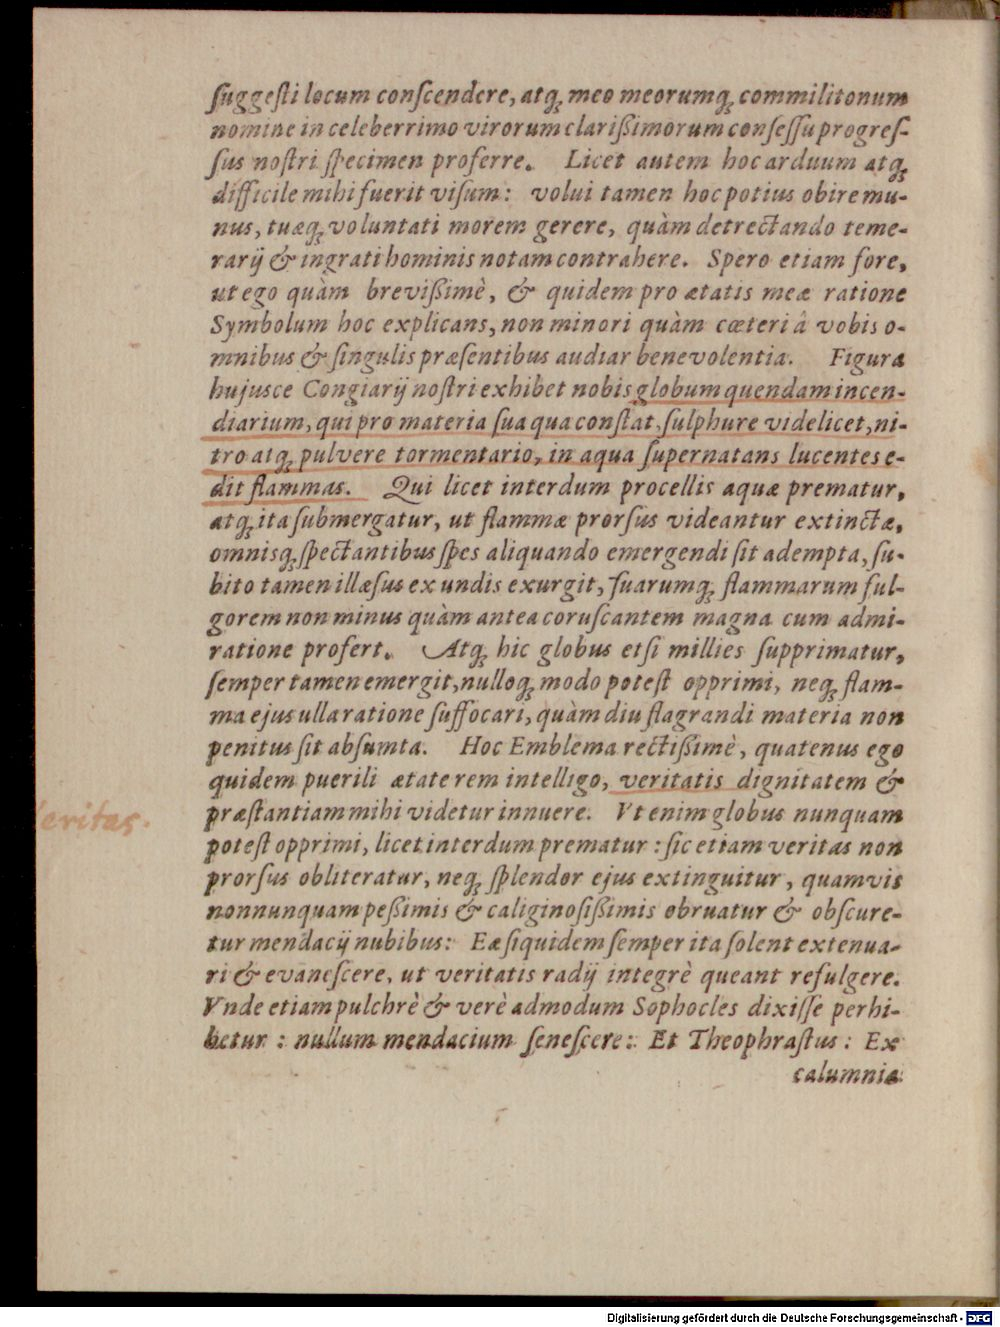 ſuggeſti locum conſcendere, atq́; meo meorumq́; commilitonum
nomine in celeberrimo virorum clarißimorum conſeſſu progreſ-
ſus noſtri ſpecimen proferre. Licet autem hoc arduum atq́;
difficile mihi fuerit viſum: volui tamen hoc potius obire mu-
nus, tuæq́; voluntati morem gerere, quàm detrectando teme-
rarij & ingrati hominis notam contrahere. Spero etiam fore,
ut ego quàm brevißimè, & quidem pro ætatis meæ ratione
Symbolum hoc explicans, non minori quàm cæteri â vobis o-
mnibus & ſingulis præſentibus audiar benevolentia. Figura
hujusce Congiarij noſtri exhibet nobis globum quendam incen-
diarium, qui pro materia ſua qua conſtat, ſulphure videlicet, ni-
tro atq́; pulvere tormentario, in aqua ſupernatans lucentes e-
dit flammas. Qui licet interdum procellis aquæ prematur,
atq́; ita ſubmergatur, ut flammæ prorſus videantur extinctæ,
omnisq́; ſpectantibus ſpes aliquando emergendi ſit adempta, ſu-
bito tamen illæſus ex undis exurgit, ſuarumq́; flammarum ful-
gorem non minus quàm antea coruſcantem magna cum admi-
ratione profert. Atq́; hic globus etſi millies ſupprimatur,
ſemper tamen emergit, nulloq́; modo poteſt opprimi, neq́; flam-
ma ejus ulla ratione ſuffocari, quàm diu flagrandi materia non
penitus ſit abſumta. Hoc Emblema rectißimè, quatenus ego
quidem puerili ætate rem intelligo, veritatis dignitatem &
præſtantiam mihi videtur innuere. Vt enim globus nunquam
eritas.
poteſt opprimi, licet interdum prematur: ſic etiam veritas non
prorſus obliteratur, neq́; ſplendor ejus extinguitur, quamvis
nonnunquam peßimis & caliginoſißimis obruatur & obſcure-
tur mendacij nubibus: Eæ ſiquidem ſemper ita ſolent extenua-
ri & evaneſcere, ut veritatis radij integrè queant refulgere.
Vnde etiam pulchrè & verè admodum Sophocles dixiſſe perhi-
betur: nullum mendacium ſeneſcere: Et Theophraſtus: Ex
calumnia
Digitalisierung gefördert durch die Deutsche Forschungsgemeinschaft - DFG